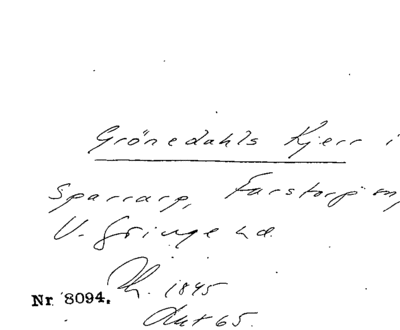 Grönedahls Kjerr i
Sparrarp, Farstorp sn,
V. Göinge hd.
1845
Nr 8094.
Akt 65.